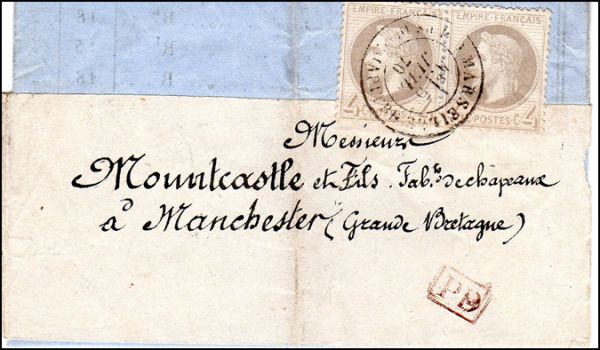 EMPIRE-FRANÇAIS
EMPIRE-FRANÇAIS
MARSEILLE
JUIL
70
4
4
POSTES
C
Messieurs
Mountcastle et Fils. Fab.ts de chapeaux
à Manchester (Grande Bretagne)
PD